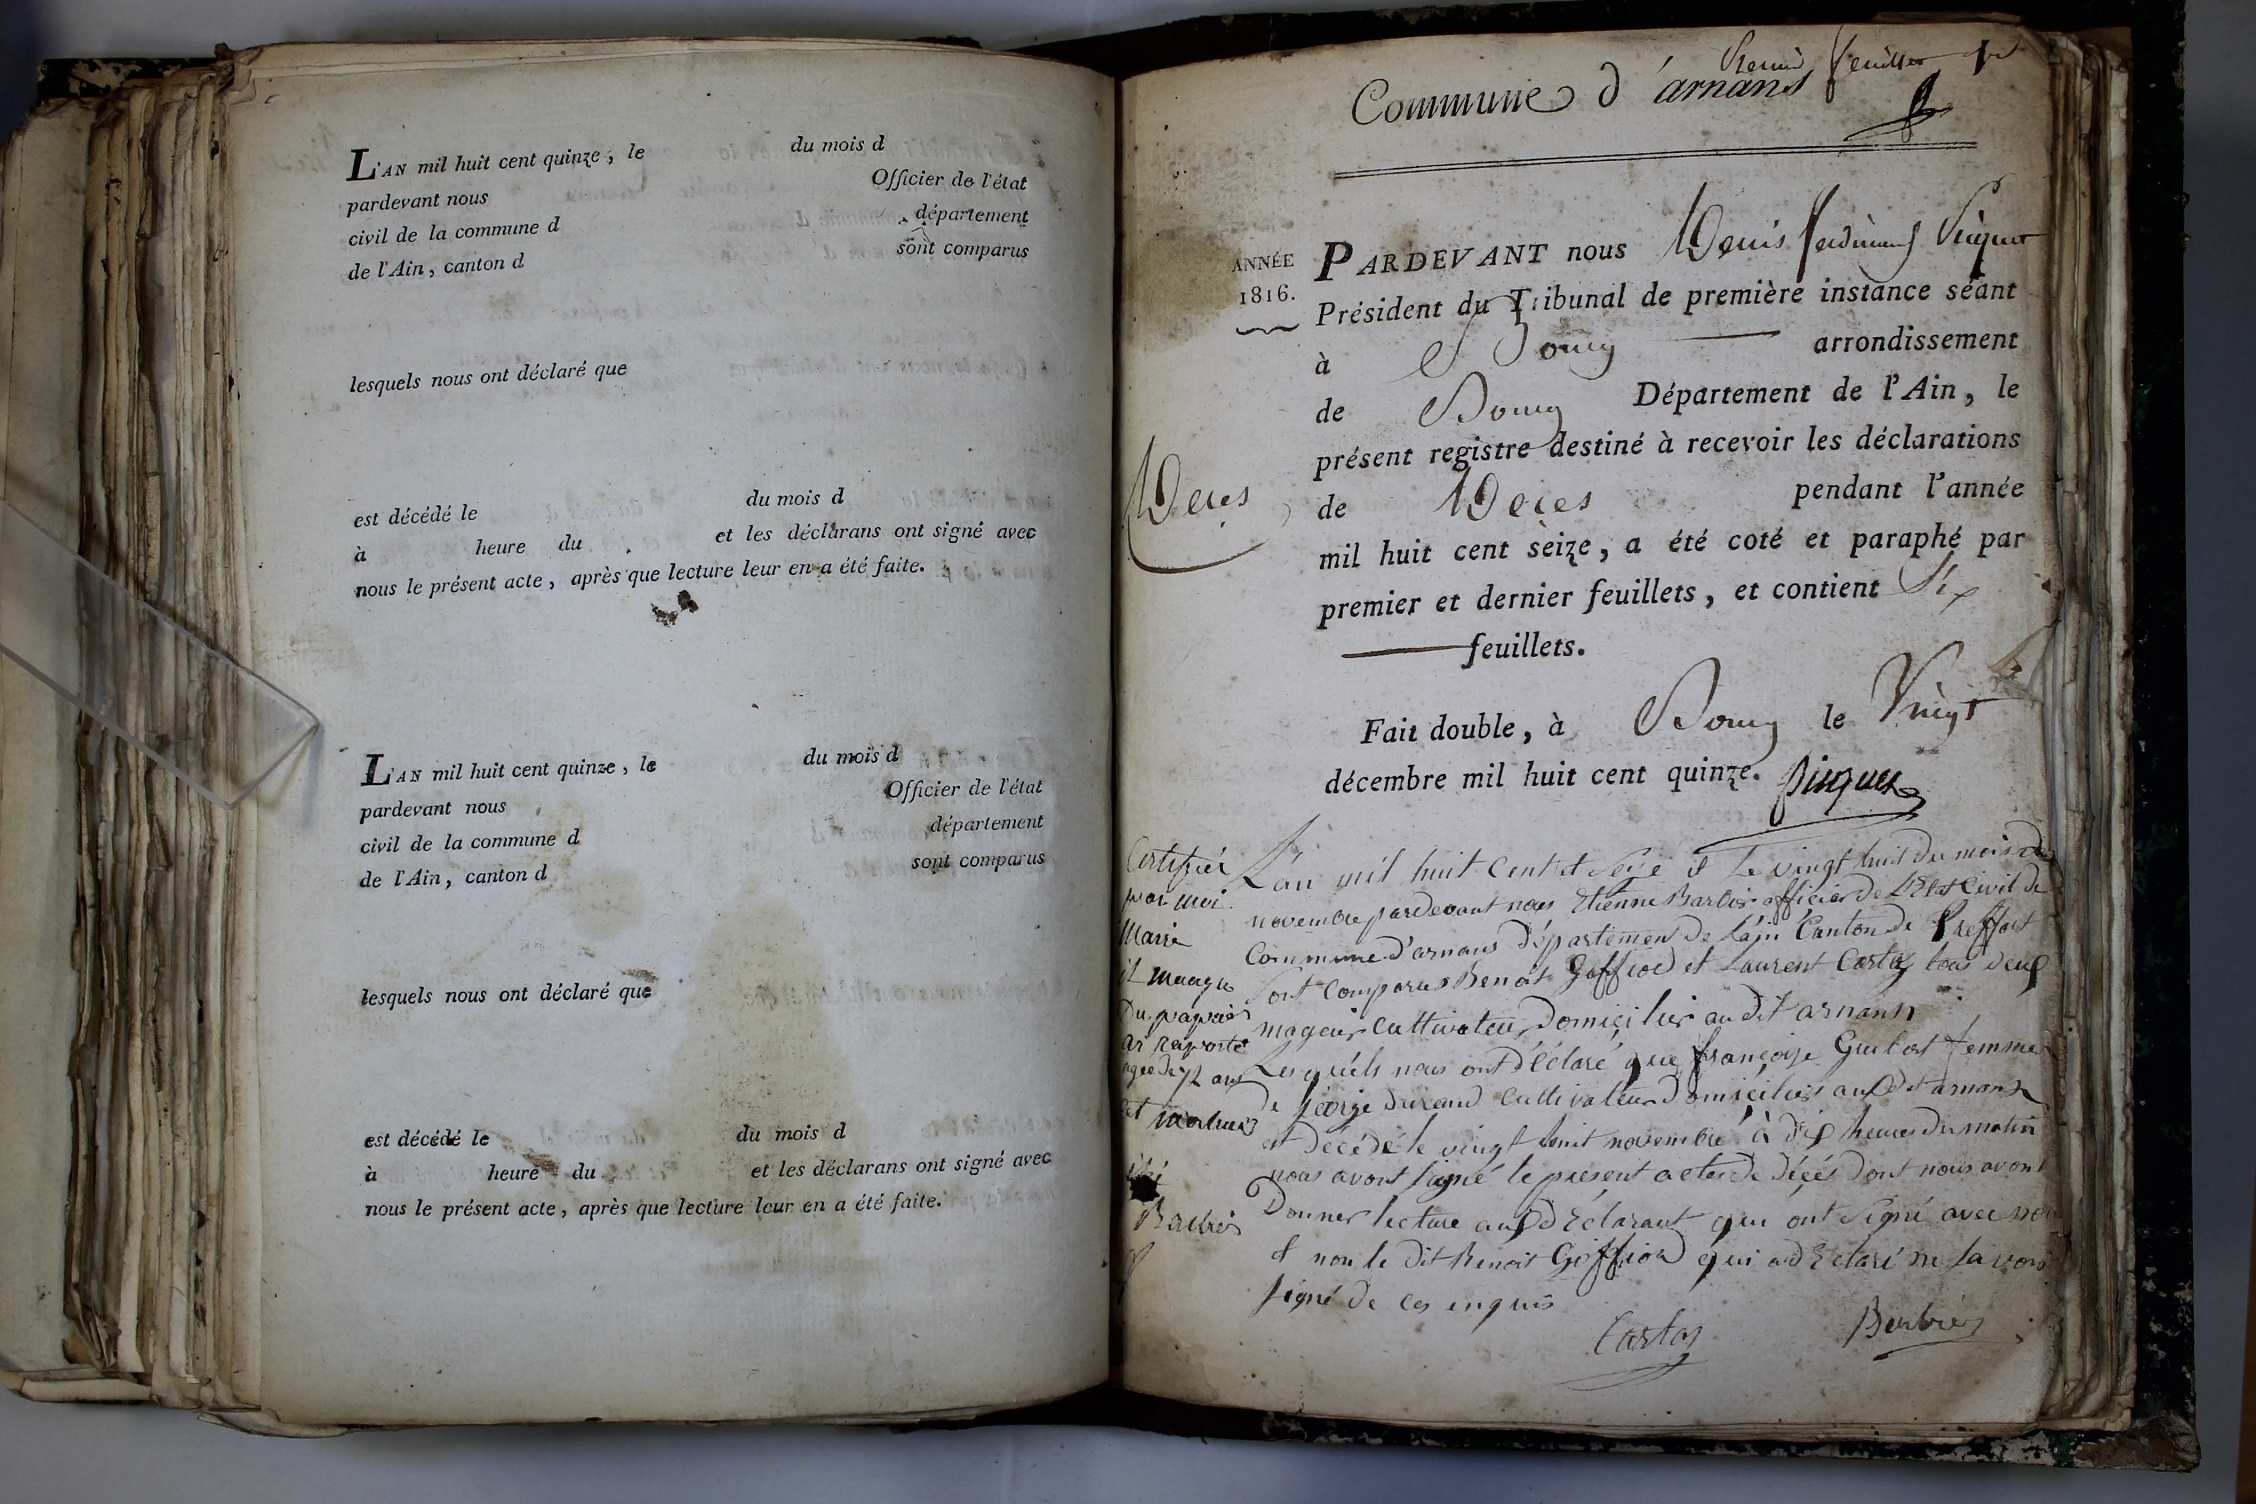 L'AN mil huit cent quinze, le du mois d
pardevant nous Officier de l'état
civil de la commune d département
de l'Ain, canton d sont comparus
lesquels nous ont déclaré que
est décédé le du mois d
à heure du et les déclarans ont signé avec
nous le présent acte, après que lecture leur en a été faite.
L'AN mil huit cent quinze, le du mois d
pardevant nous Officier de l'état
civil de la commune d département
de l'Ain, canton d sont comparus
lesquels nous ont déclaré que
est décédé le du mois d
à heure du et les déclarans ont signé avec
nous le présent acte, après que lecture leur en a été faite.
Commune d'arnans
ANNÉE
1816.
PARDEVANT nous Denis ferdinand Picquet
Président du Tribunal de première instance séant
à Bourg arrondissement
de Bourg Département de l'Ain, le
présent registre destiné à recevoir les déclarations
Deces
de Deces pendant l'année
mil huit cent seize, a été coté et paraphé par
premier et dernier feuillets, et contient Six
feuillets.
Fait double, à Bourg le Vingt
décembre mil huit cent quinze. Picquet
Certifiér
par moi
Maire
il manque
Du papier
agée de 72 ans
Barbier
L'an mil huit Cent et Seize et Le vingt huit du mois de
novembre pardevant nous Etienne Barbier officier de L'Etat Civil de
Commune d'arnans Département de L'ain Canton de Treffort
Sont Comparus Benoit Goffiod et Laurent Cartaz tous deux
mageur Cultivateur Domicilier au dit arnans
Lesquéls nous ont Déclaré que françoise femme
de durand Cultivateur Domicilier au dit arnans
et Décédé le vingt huit novembre à dix heures du matin
nous avont signé le présent acte de décés dont nous avont
Donner lecture aux déclarant qui ont signé avec nous
et non le dit Benoit Goffiod qui a déclaré ne savoir
signé de ces enquis
Cartaz Barbier